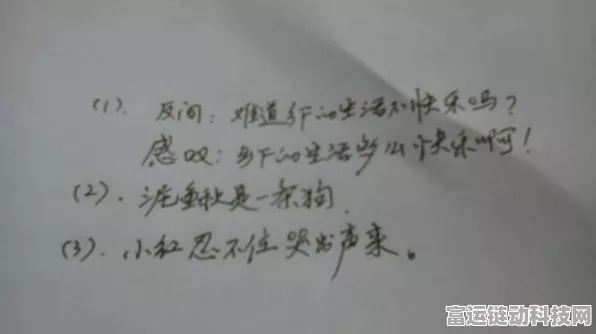 (1). 反问：难道乡下的生活不快乐吗？
感叹：乡下的生活多么快乐啊！
(2). 泥鳅是一条狗
(3). 小红忍不住哭出声来。
富运链动科技网